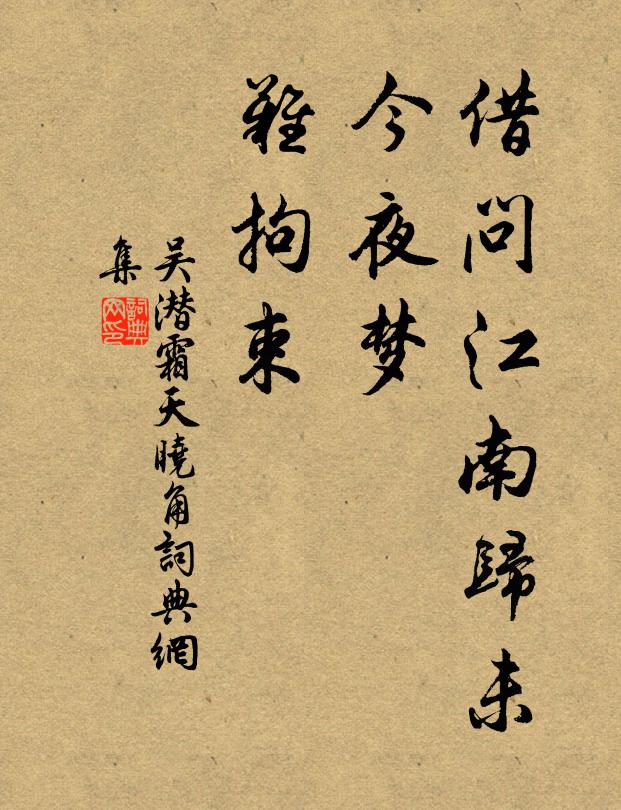 借问江南歸未
今夜梦
难拘束
吴潜霜天曉角詞典網
集
詞典网印